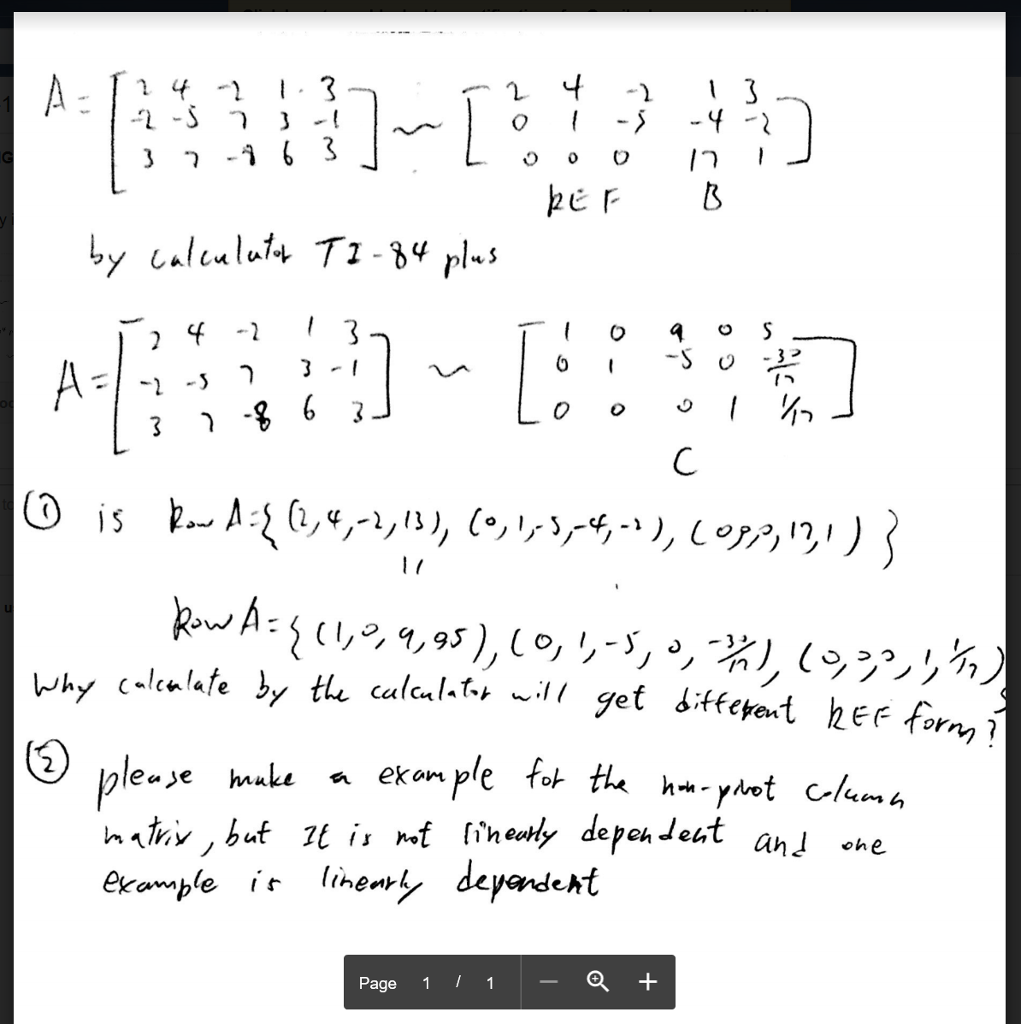 A = [ 2 4 -2 1 3 ] ~ [ 2 4 -2 1 3 ]
-2 -5 7 3 -1 0 1 -5 -4 -2
3 7 -8 6 3 0 0 0 17 1
REF B
by calculator TI-84 plus
A = [ 2 4 -2 1 3 ] ~ [ 1 0 9 0 5 ]
-2 -5 7 3 -1 0 1 -5 0 -30/17
3 7 -8 6 3 0 0 0 1 1/17
C
① is Row A = { (2,4,-2,13), (0,1,-5,-4,-2), (0,0,0,17,1) }
11
Row A = { (1,0,9,05), (0,1,-5,0,-30/17), (0,0,0,1,1/17) }
Why calculate by the calculator will get different REF form?
② please make a example for the non-pivot column
matrix, but It is not linearly dependent and one
example is linearly dependent
Page 1 / 1